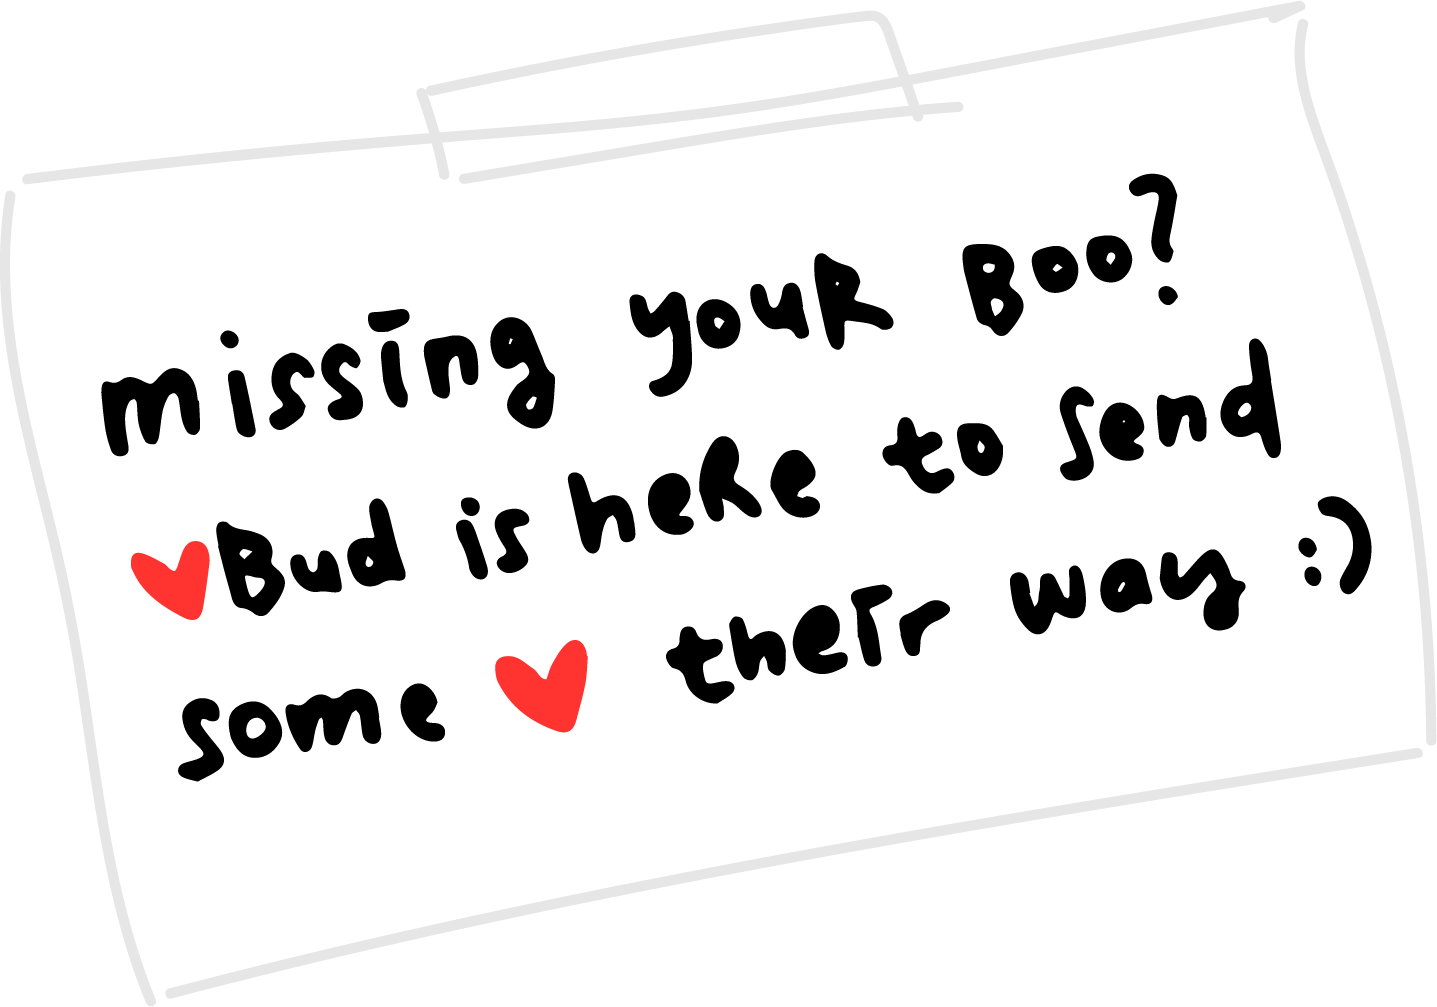 missing your Boo?
❤Bud is here to send
some ❤ their way :)